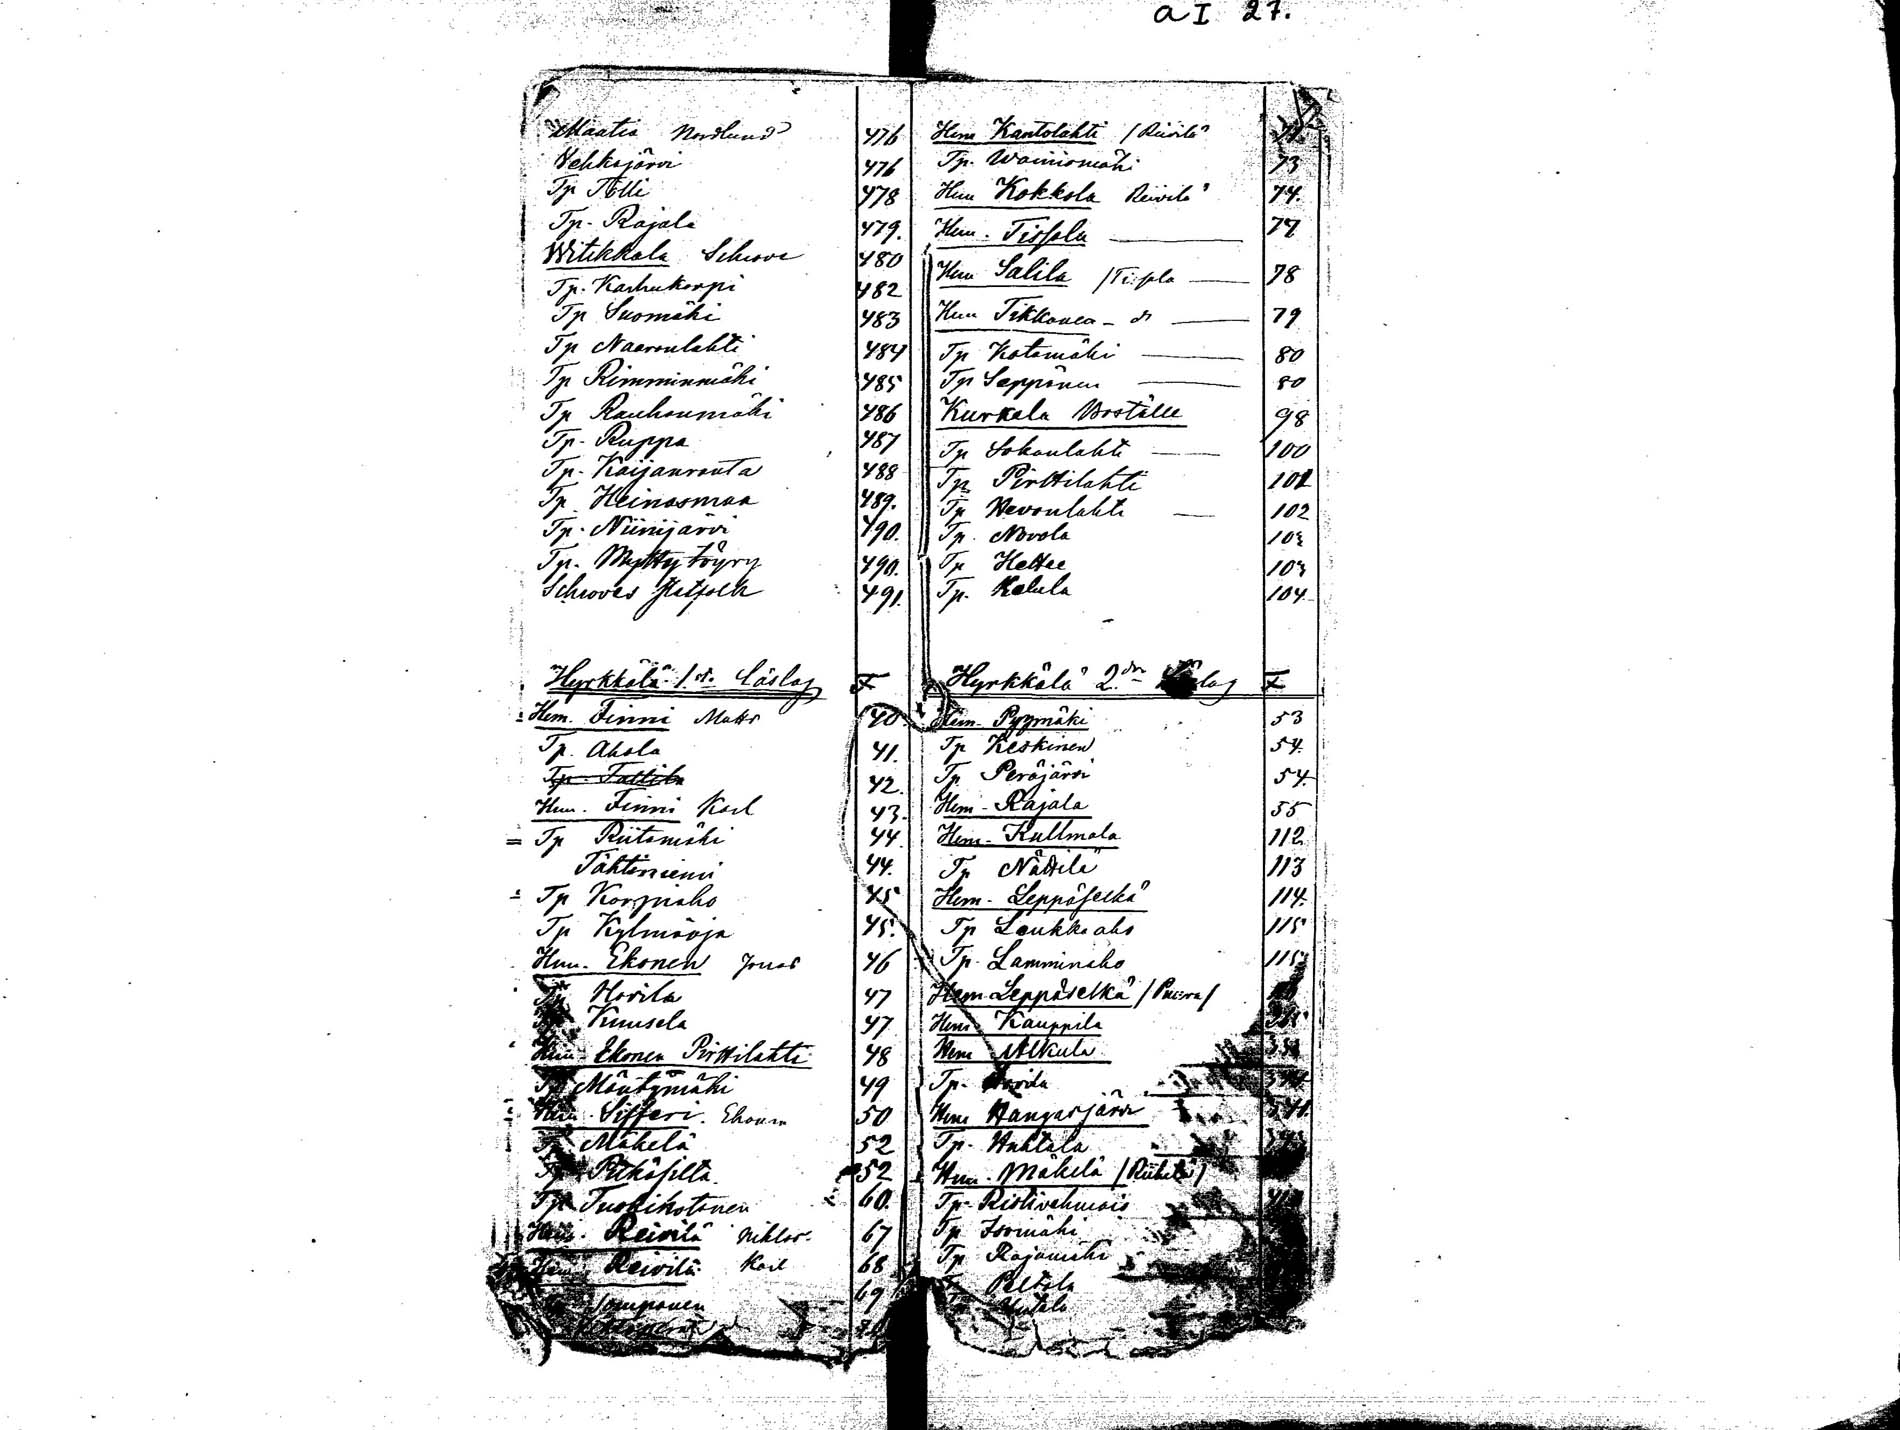 a I 27.
Maatia Nordlund 476
Vehkajärvi 476
Tp Alli 478
Tp. Rajala 479.
Witikkala Schrove 480
Tp. Karhukorpi 482
Tp Suomäki 483
Tp Naaranlahti 484
Tp Rimminmäki 485
Tp Rauhanmäki 486
Tp. Ruppa 487
Tp. Kaijanranta 488
Tp. Heinäsmaa 489.
Tp. Niinijärvi 490.
Tp. Myttytöyry 490.
Schroves 491.
Hyrkkälä 1sta Läslag F
Hem. Finni Matts 40.
Tp. Ahola 41.
Tp. Tattila 42.
Hem. Finni Karl 43.
Tp Riitamäki 44.
Tähtiniemi 44.
Tp Korpiaho 45
Tp Kylmäoja 45.
Hem. Ekonen Jonas 46
Tp Hovila 47
Tp Kuusela 47
Hem. Ekonen Pirttilahti 48
Tp Mäntymäki 49
Hem. Sifferi. Ekonen 50
Tp Mäkelä 52
Tp Pitkäsilta 52
Tp. Tuohikotanen 60.
Hem. Reivilä Niklas. 67
Hem. Reivilä Karl 68
Somponen 69
Hem Kantolahti /Reivilä
Tp. Wainiomäki 73
Hem Kokkola Reivilä 74.
Hem. Tissola 77
Hem Salila /Tissola 78
Hem Tikkanen - d: 79
Tp Kotamäki 80
Tp Seppänen 80
Kurkela Boställe 98
Tp Sokanlahti 100
Tp Pirttilahti 101
Tp Hevonlahti 102
Tp. Novola 103
Tp Hettee 103
Tp. Kekula 104
Hyrkkälä 2dra Läslag F
Hem. Pyymäki 53
Tp Keskinen 54.
Tp Peräjärvi 54.
Hem. Rajala 55
Hem. Kullmala 112
Tp Nättilä 113
Hem. Leppäselkä 114.
Tp Leukkoaho 115
Tp. Lamminaho 115
Hem. Leppäselkä
Hem. Kauppila
Hem Alkula
Tp. Hovila
Hem Hangasjärvi
Tp. Huhtala
Hem. Mäkelä
Tp. Ristivehmais
Tp Isomäki
Tp Rajamäki
Tp Peltola